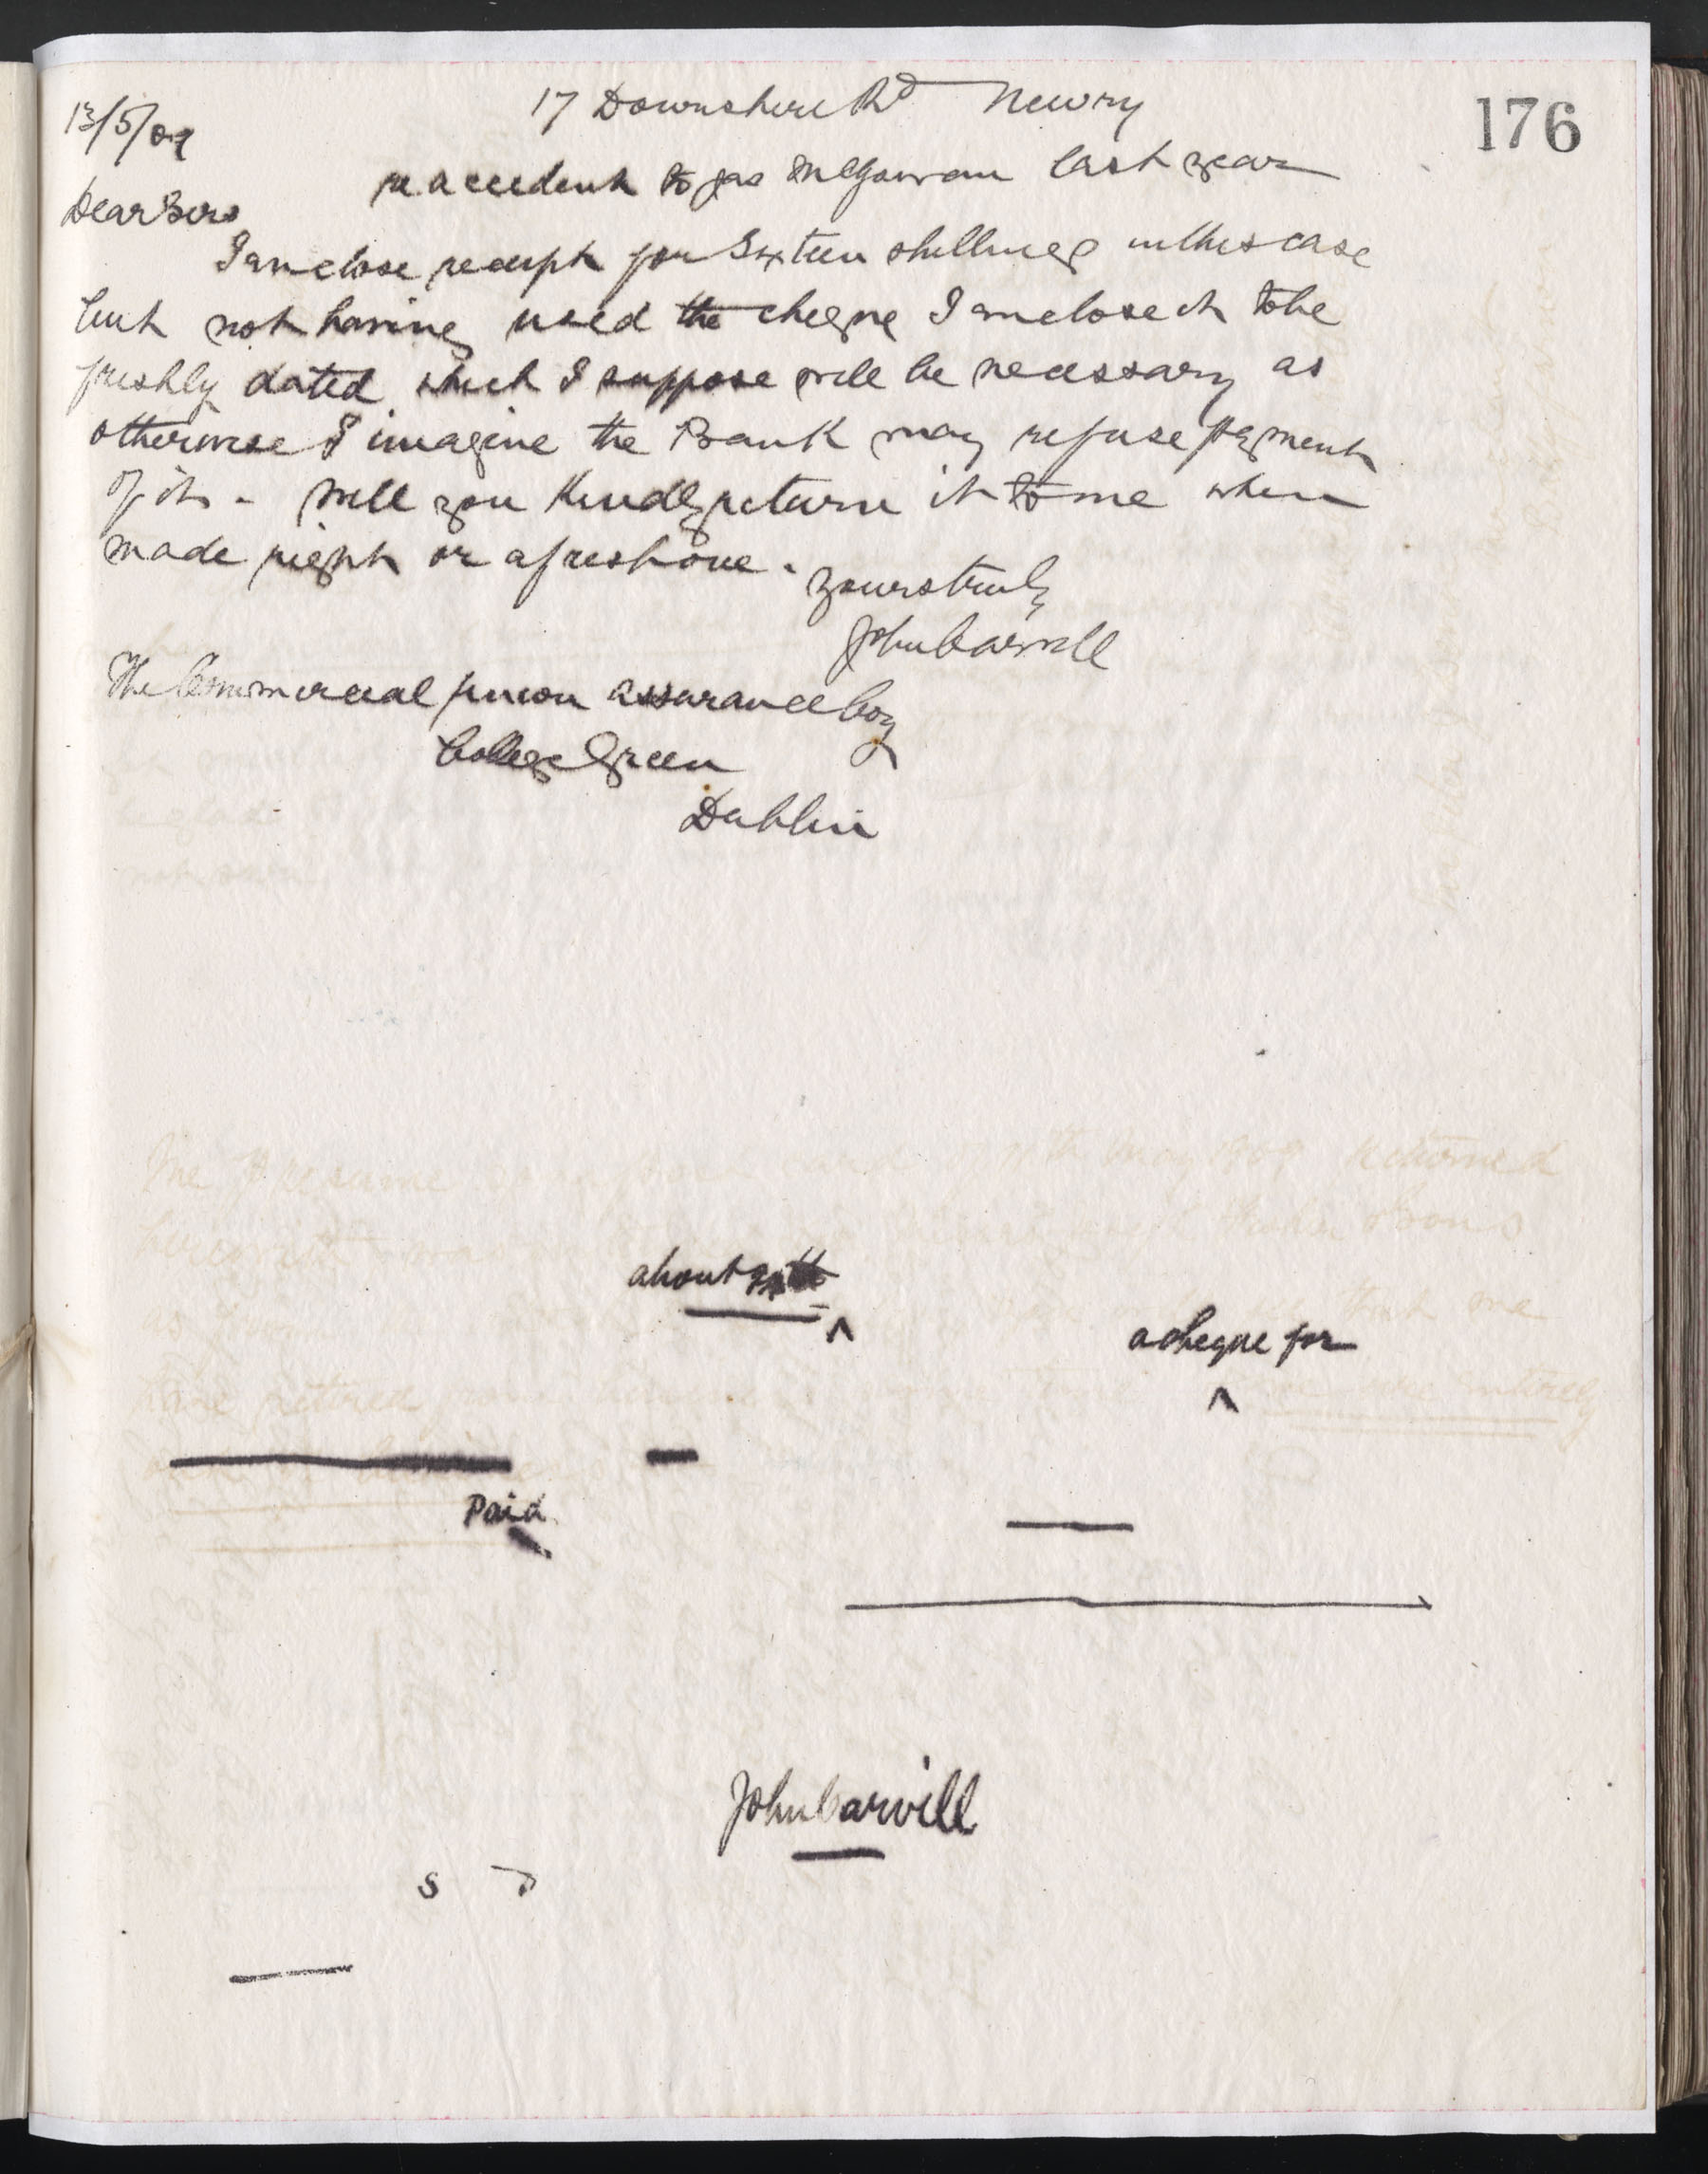 176
17 Downshire Rd Newry
13/5/09
re accident to Jas McGowan last year
Dear Sirs
I enclose receipt for Sixteen shillings in this case
but not having used the cheque I enclose it to be
freshly dated which I suppose will be necessary as
otherwise I imagine the Bank may refuse payment
of it - Will you kindly return it to me when
made right or a fresh one.
Yours truly
John Carvill
The Commercial Union Assurance Coy
College Green
Dublin
about
^
a cheque for
^
Paid
John Carvill
S D